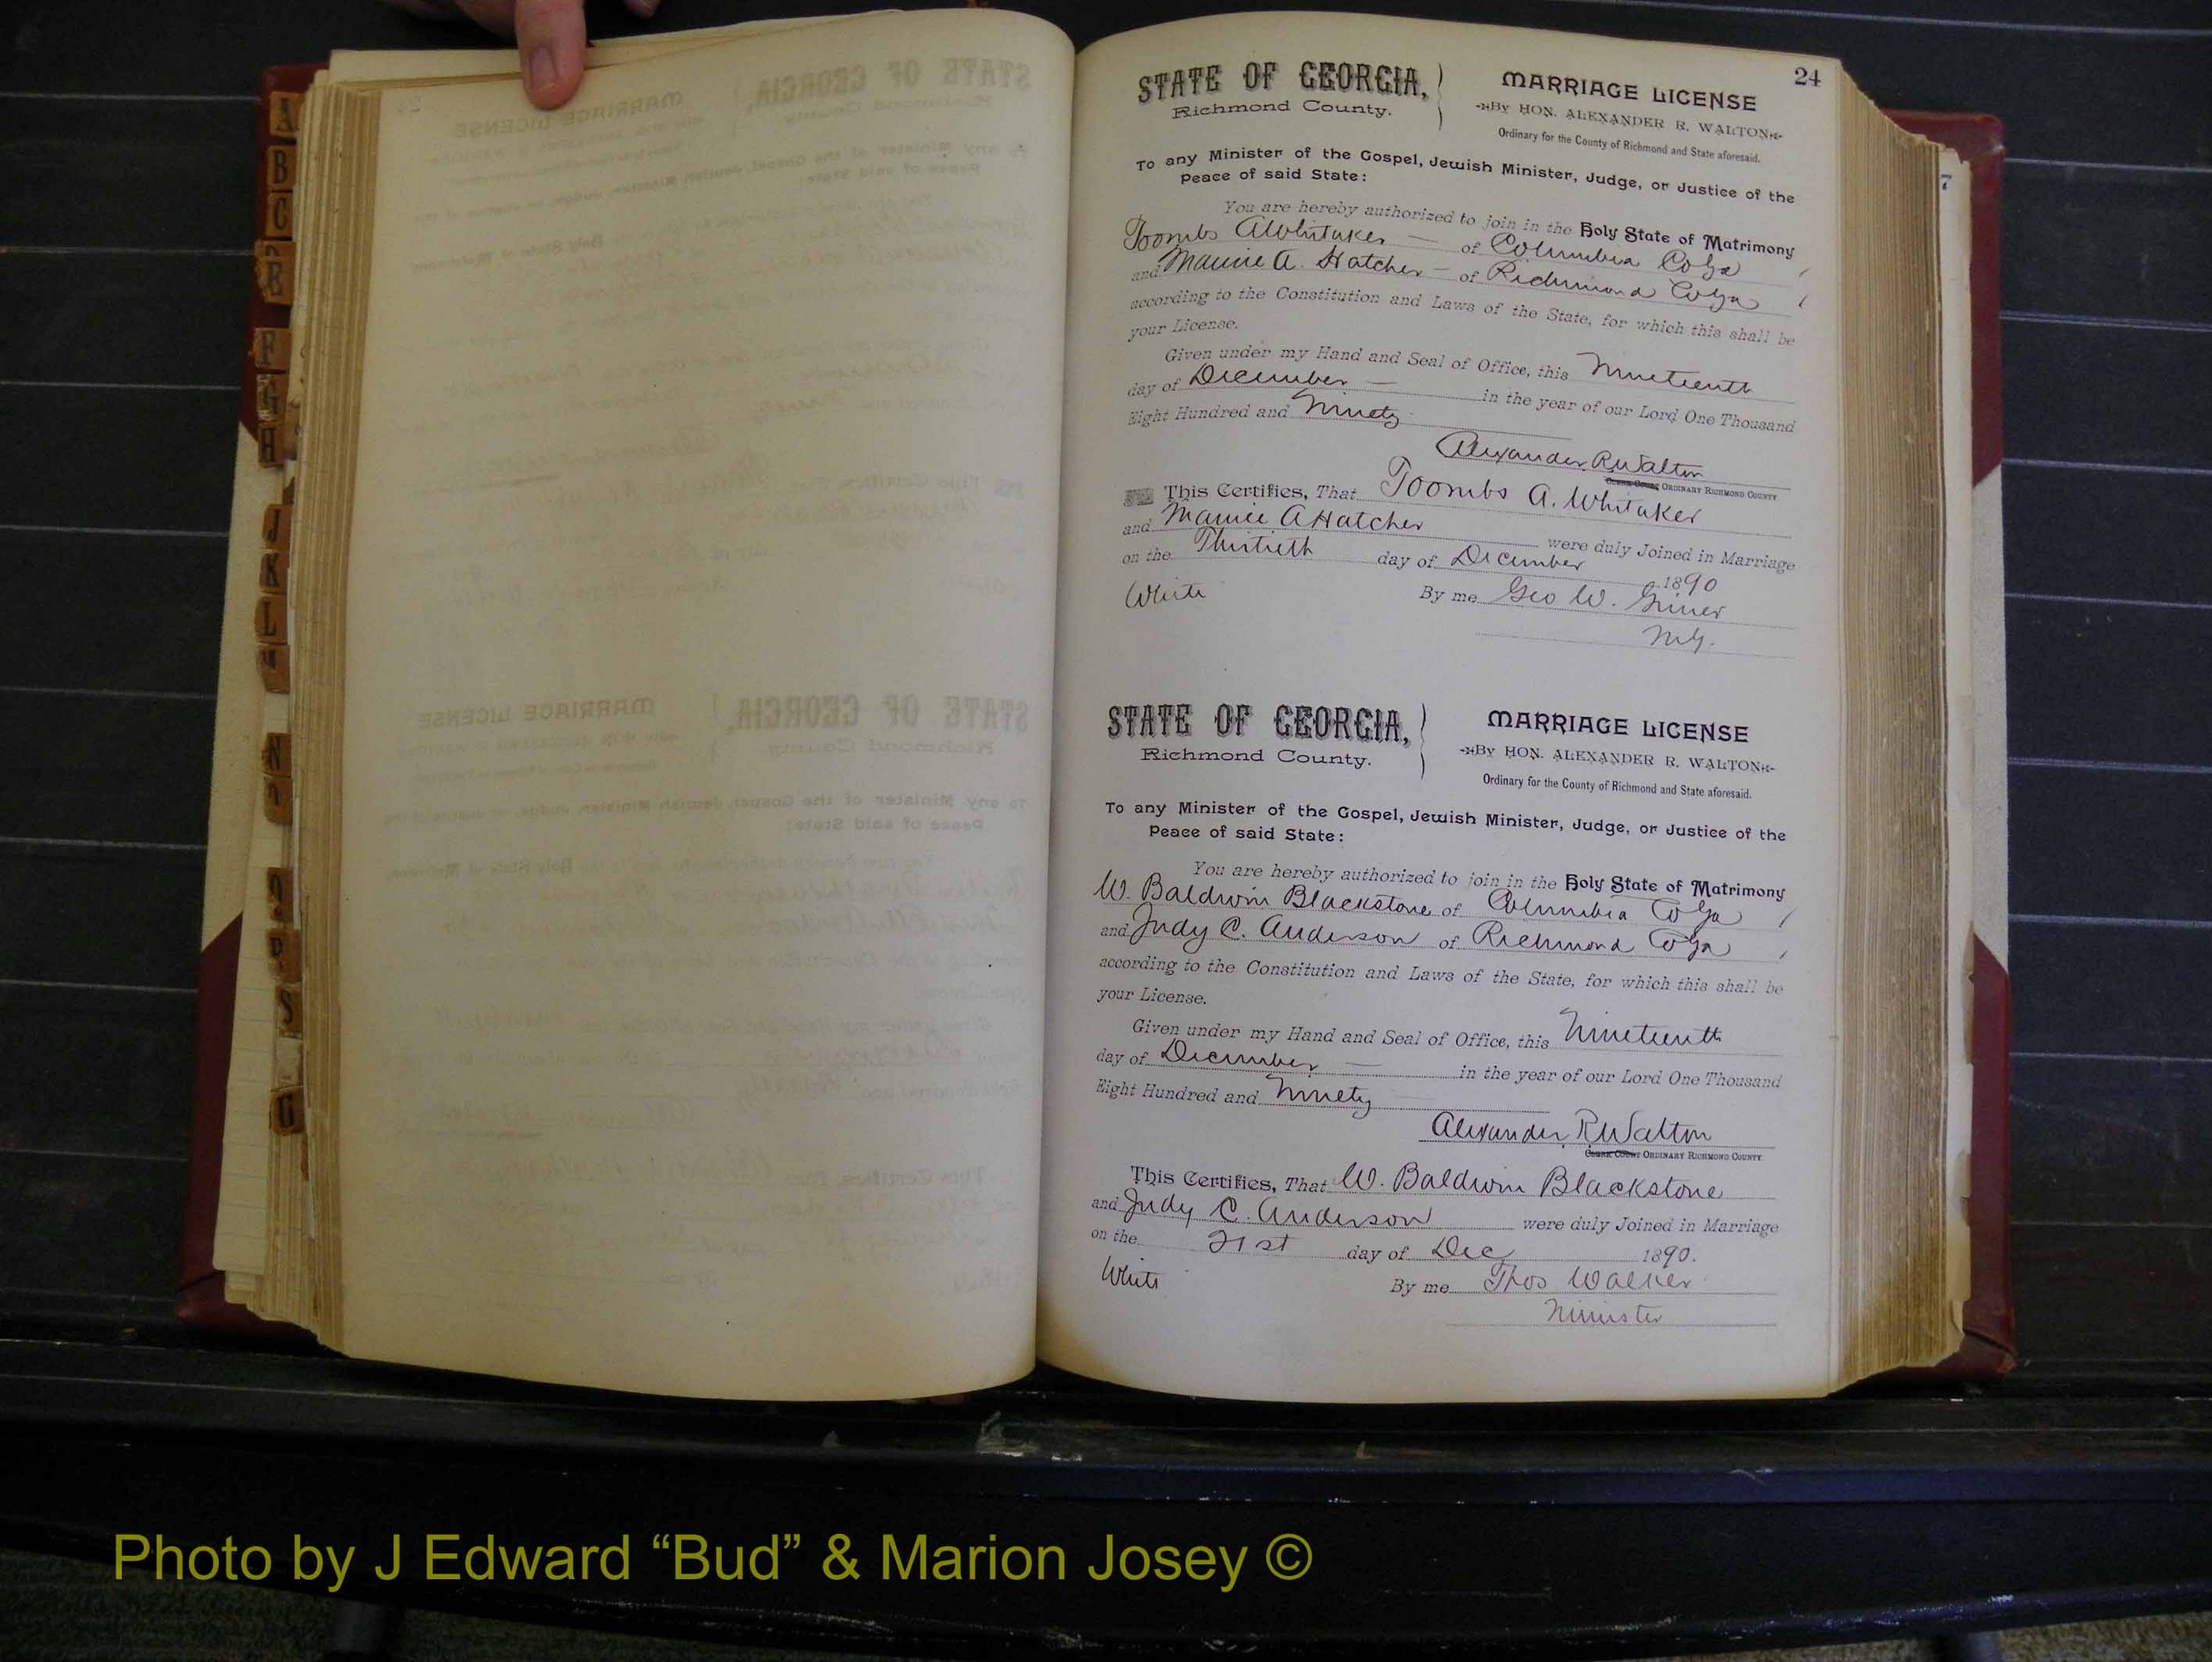 A
B
C
F
G
H
J
K
L
N
P
S
24
7
STATE OF GEORGIA,
Richmond County.
MARRIAGE LICENSE
By HON. ALEXANDER R. WALTON
Ordinary for the County of Richmond and State aforesaid.
To any Minister of the Gospel, Jewish Minister, Judge, or Justice of the
Peace of said State:
You are hereby authorized to join in the Holy State of Matrimony
Toombs A Whitaker — of Columbia Co Ga
and A. Hatcher — of Richmond Co Ga
according to the Constitution and Laws of the State, for which this shall be
your License.
Given under my Hand and Seal of Office, this Nineteenth
day of December — in the year of our Lord One Thousand
Eight Hundred and Ninety
Alexander R Walton
Clerk Court ORDINARY RICHMOND COUNTY
This Certifies, That Toombs A. Whitaker
and A Hatcher were duly Joined in Marriage
on the Thirtieth day of December 1890
White By me Geo W.
M.G.
STATE OF GEORGIA,
Richmond County.
MARRIAGE LICENSE
By HON. ALEXANDER R. WALTON
Ordinary for the County of Richmond and State aforesaid.
To any Minister of the Gospel, Jewish Minister, Judge, or Justice of the
Peace of said State:
You are hereby authorized to join in the Holy State of Matrimony
W. Baldwin Blackstone of Columbia Co Ga
and Judy C. Anderson of Richmond Co Ga
according to the Constitution and Laws of the State, for which this shall be
your License.
Given under my Hand and Seal of Office, this Nineteenth
day of December — in the year of our Lord One Thousand
Eight Hundred and Ninety
Alexander R Walton
Clerk Court ORDINARY RICHMOND COUNTY
This Certifies, That W. Baldwin Blackstone
and Judy C. Anderson were duly Joined in Marriage
on the 21st day of Dec 1890.
White By me Thos Walker
Minister
Photo by J Edward “Bud” & Marion Josey ©